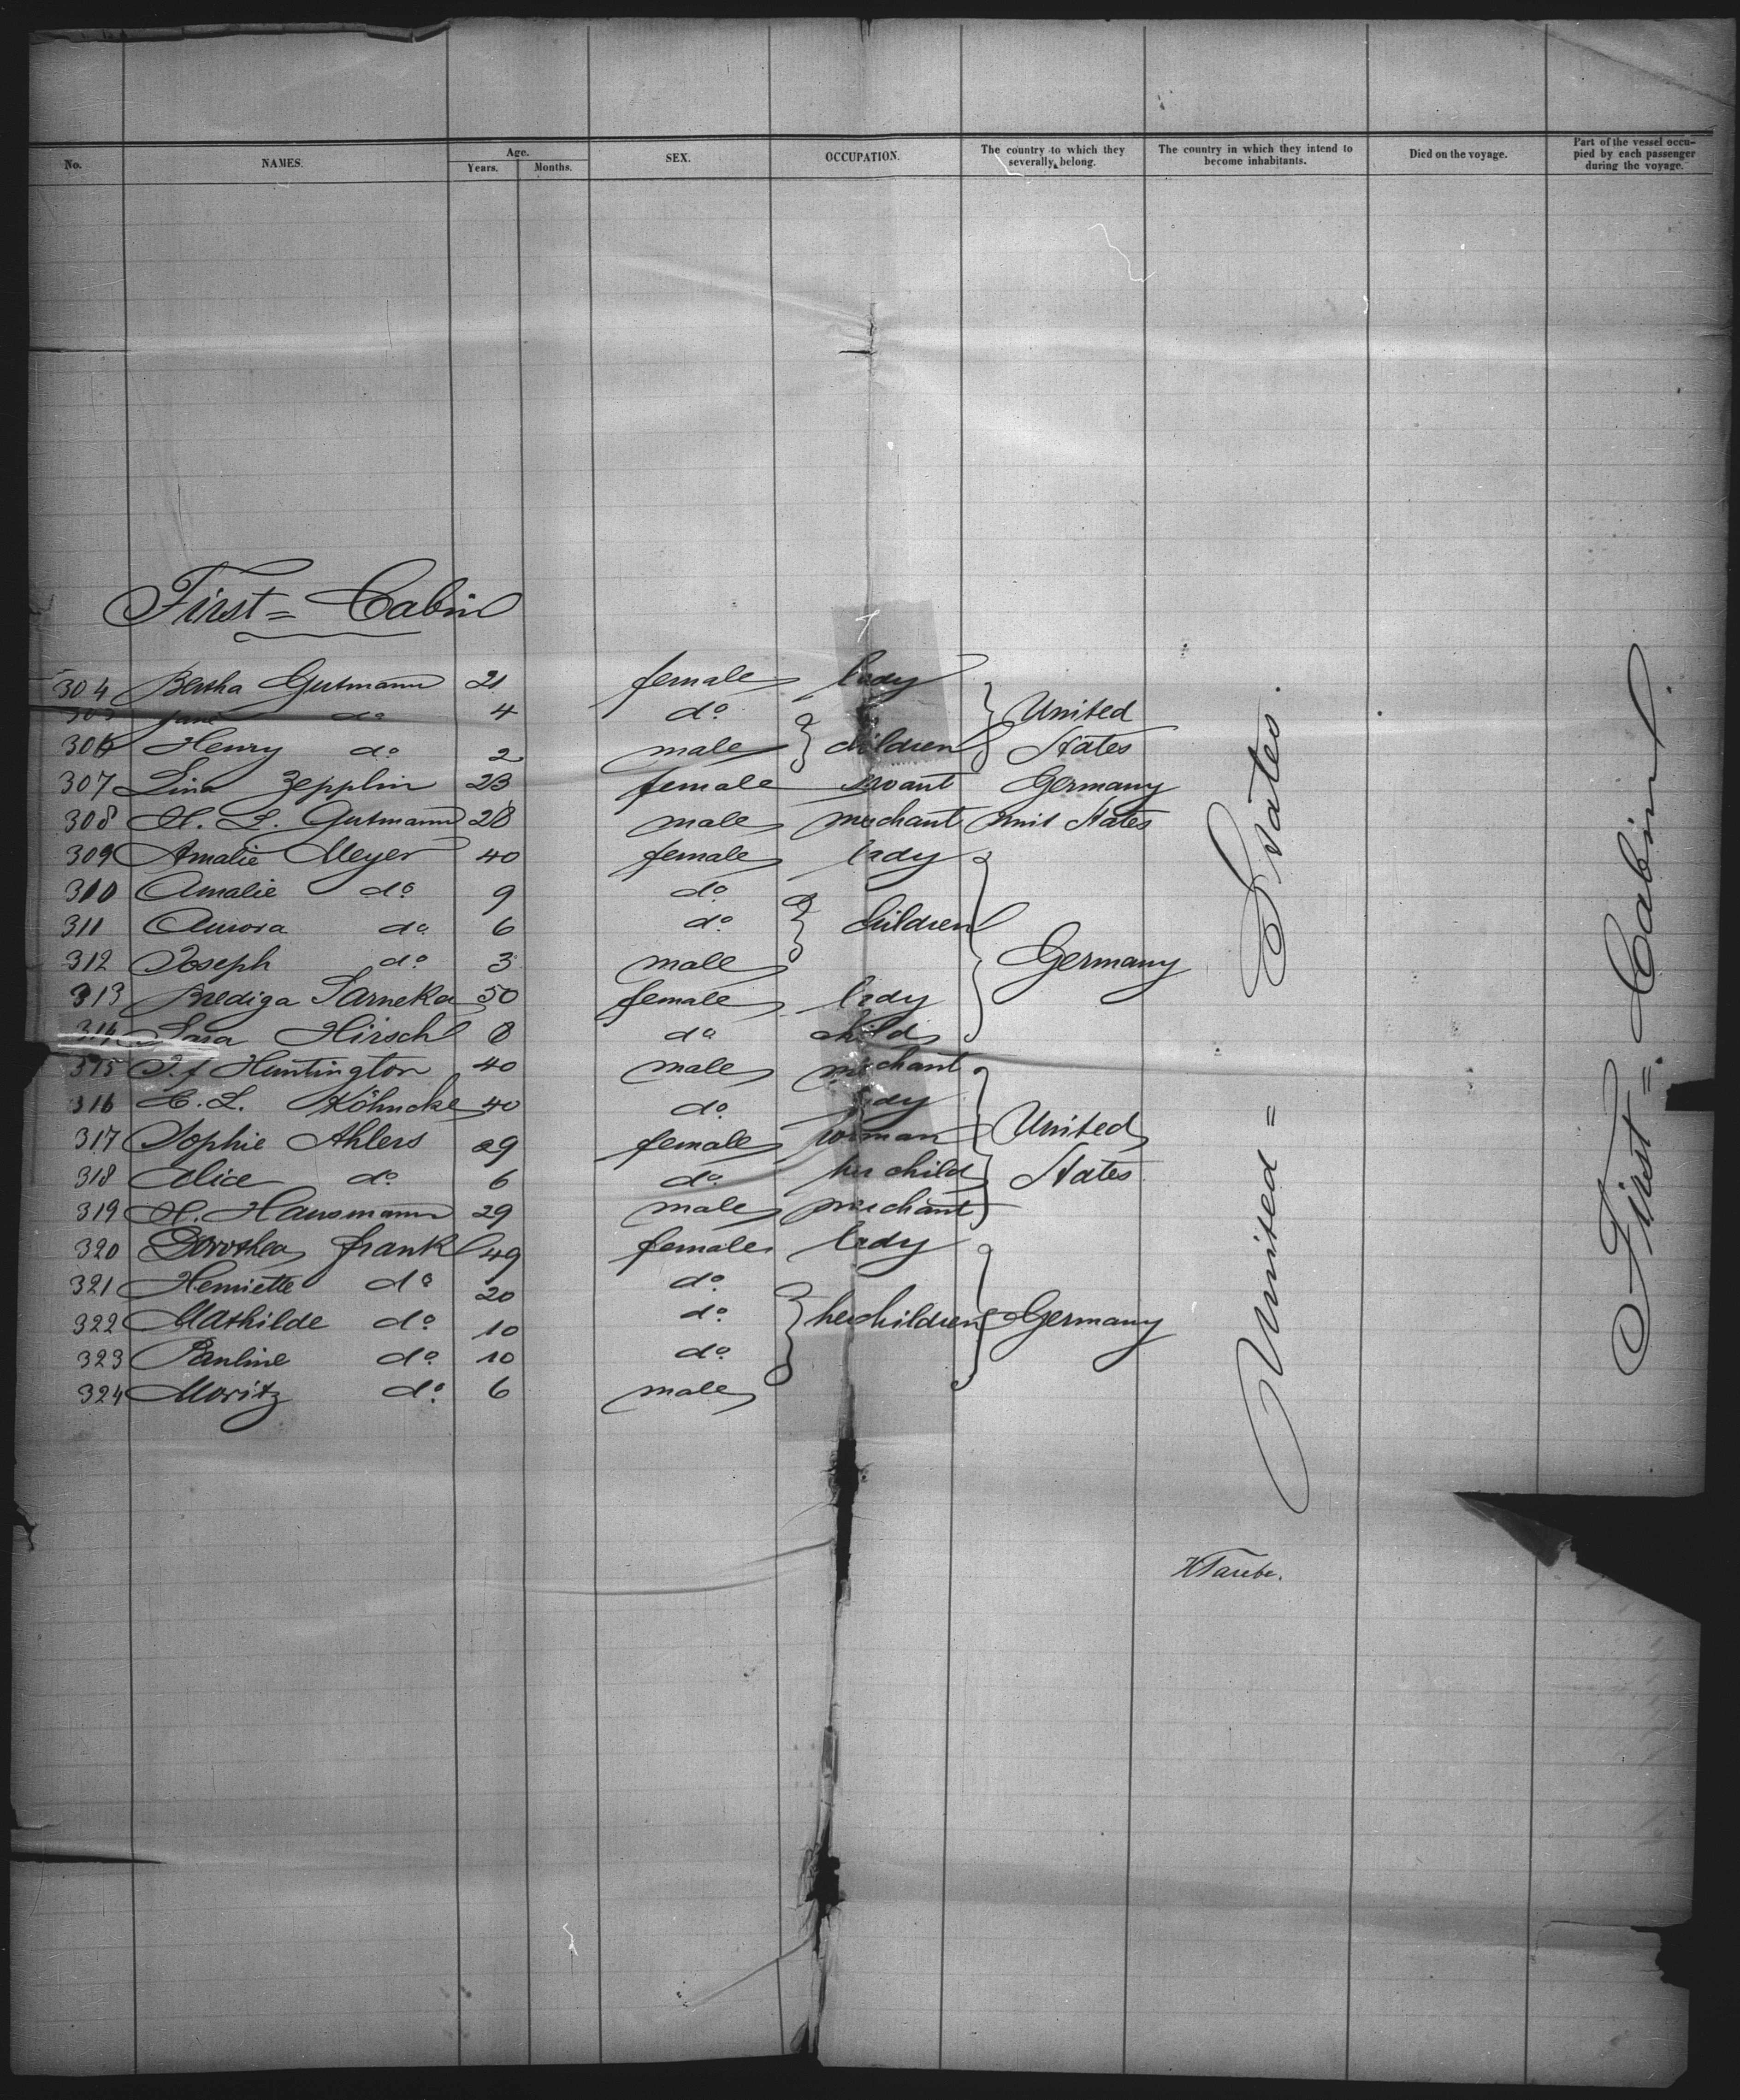 No. NAMES. Age. Years. Months. SEX. OCCUPATION. The country to which they severally belong. The country in which they intend to become inhabitants. Died on the voyage. Part of the vessel occupied by each passenger during the voyage.
First = Cabin
304 Bertha Gutmann 21 female lady
305 Jane do 4 do United
306 Henry do 2 male children States
307 Lina Zepplin 23 female servant Germany
308 H. L. Gutmann 28 male merchant Unit States
309 Amalie Meyer 40 female lady
310 Amalie do 9 do
311 Aurora do 6 do Children
312 Joseph do 3 male Germany
313 Prediga Sarneka 50 female lady
314 Sara Hirsch 8 do child
315 Huntington 40 male merchant
316 L. Köhncke 40 do
317 Sophie Ahlers 29 female woman United
318 Alice do 6 do her child States
319 H. Hausmann 29 male merchant
320 Dorothea Frank 49 female lady
321 Henriette do 20 do
322 Mathilde do 10 do her children Germany
323 Pauline do 10 do
324 Moritz do 6 male
United = States.
First = Cabin.